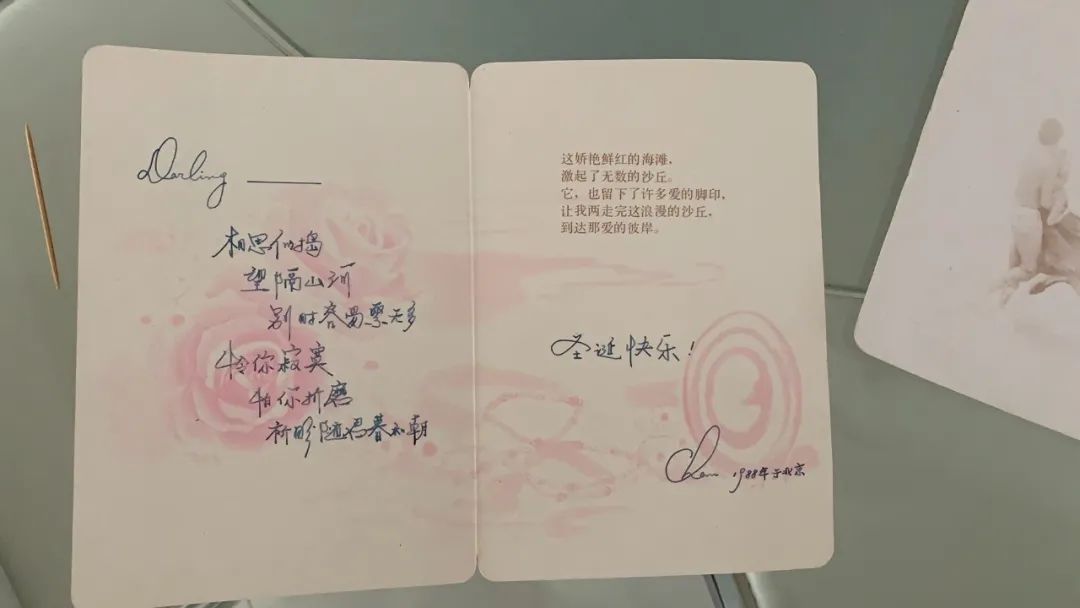 Darling ———
相思似捣
望隔山河
别时容易聚无多
怜你寂寞
怕你折磨
祈盼随君暮和朝
这娇艳鲜红的海滩，
激起了无数的沙丘。
它，也留下了许多爱的脚印，
让我两走完这浪漫的沙丘，
到达那爱的彼岸。
圣诞快乐！
Chen 1988年于北京